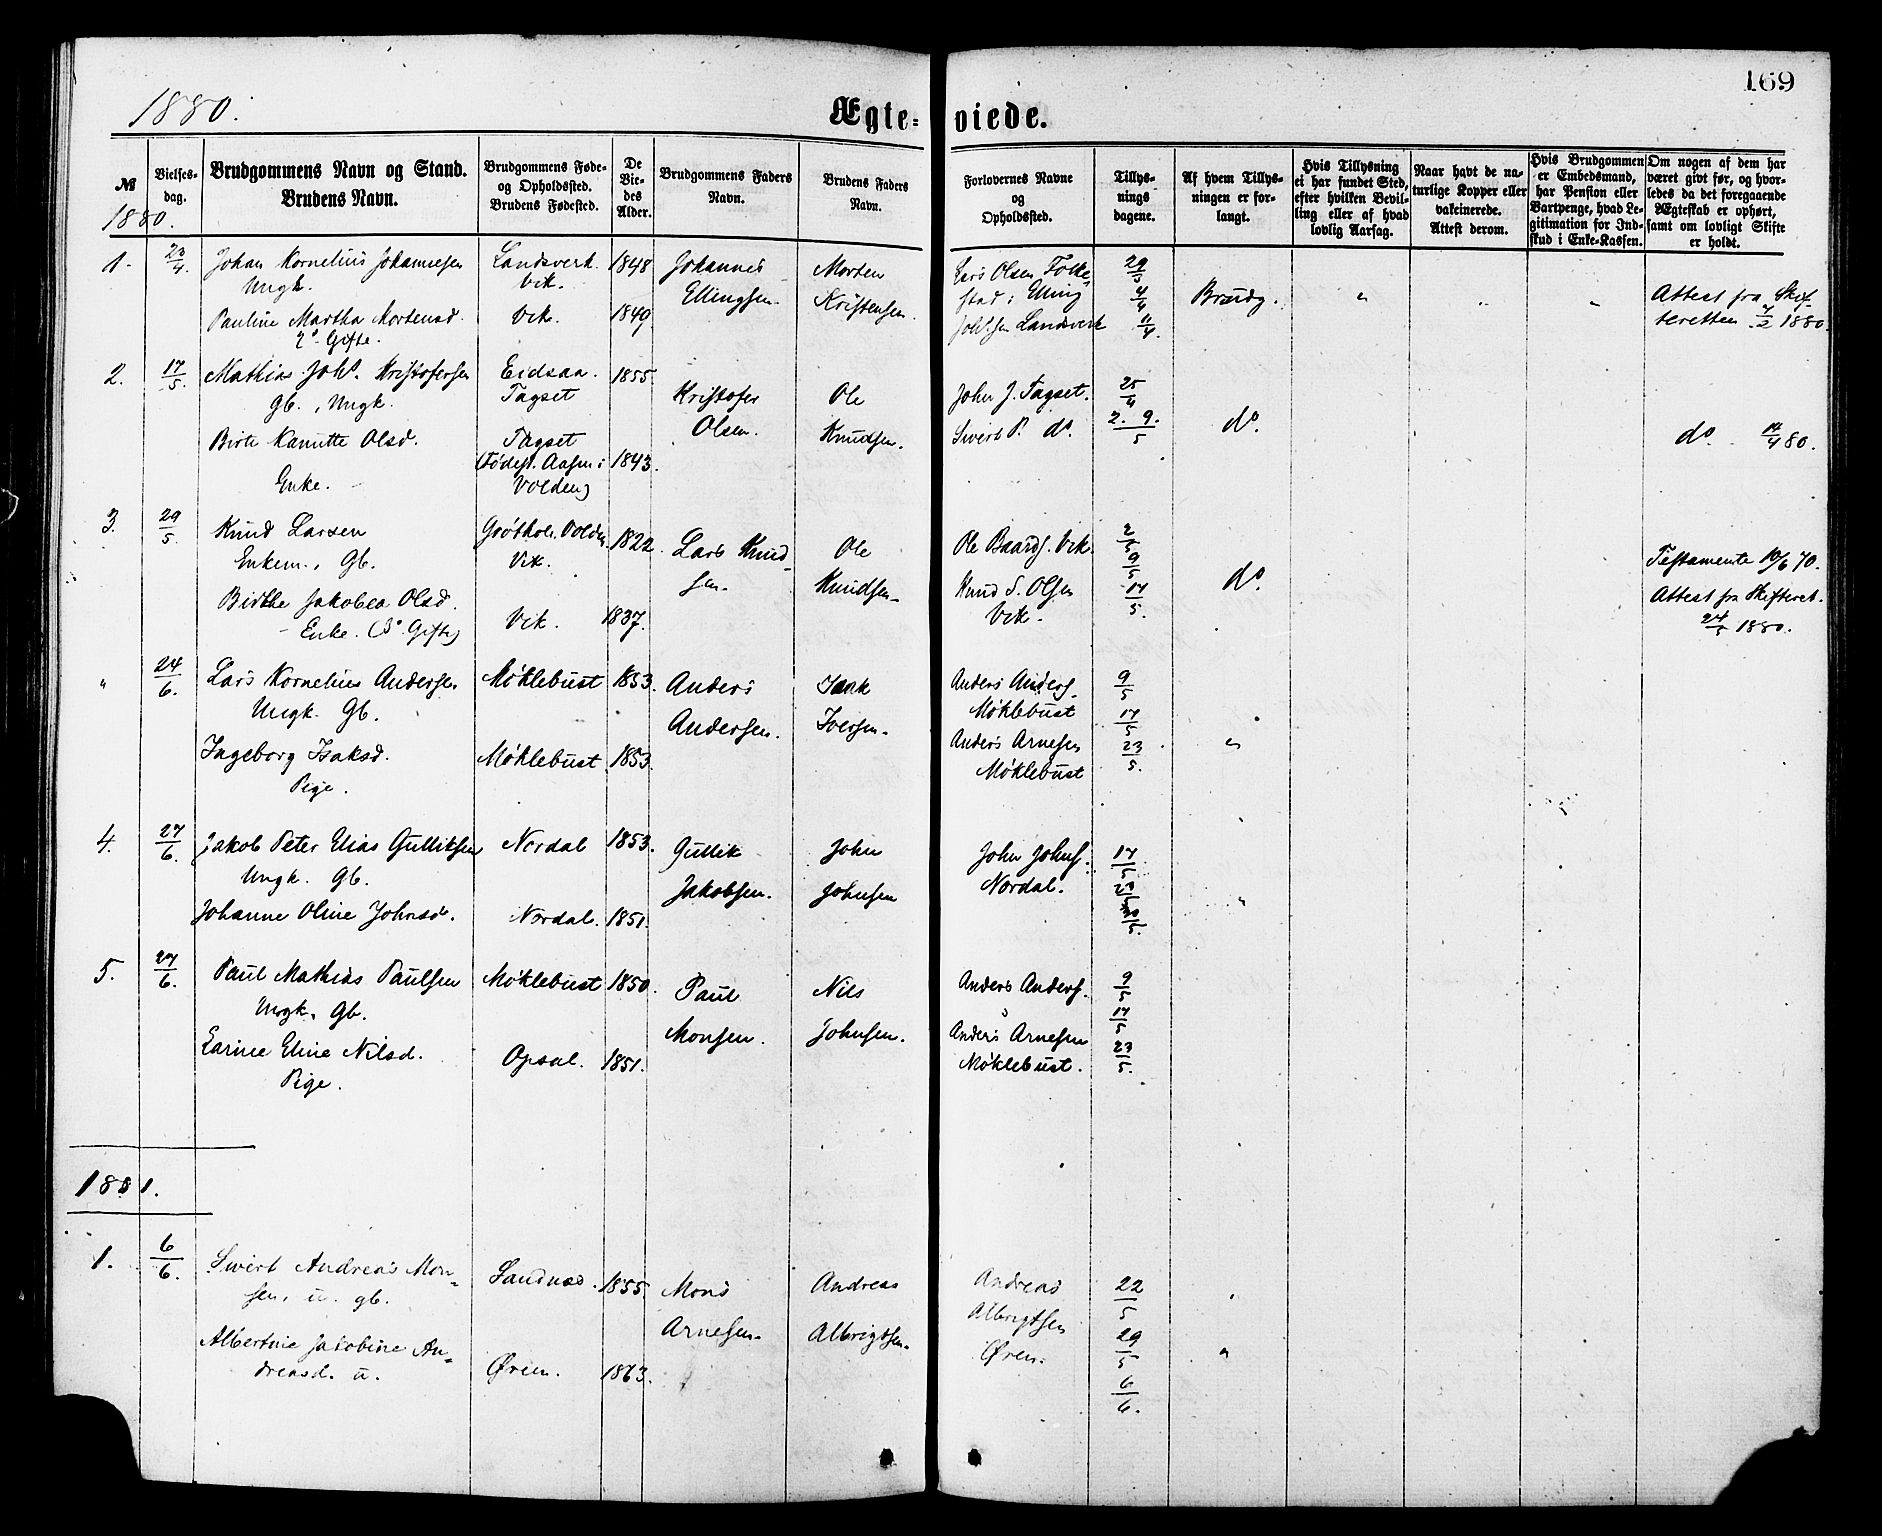 169
1880.
Ægte-viede.
№
Vielses-dag.
Brudgommens Navn og Stand.
Brudens Navn.
Brudgommens Føde-
og Opholdssted.
Brudens Fødested.
De
Vie-
des
Alder.
Brudgommens Faders
Navn.
Brudens Faders
Navn.
Forlovernes Navne
og
Opholdssted.
Tillys-
nings
dagene.
Af hvem Tillys-
ningen er for-
langt.
Hvis Tillysning
ei har fundet Sted,
efter hvilken Bevil-
ling eller af hvad
lovlig Aarsag.
Naar havt de na-
turlige Kopper eller
vakcinerede.
Attest derom.
Hvis Brudgommen
er Embedsmand,
har Pension eller
Vartpenge, hvad Le-
gitimation for Ind-
skud i Enke-Kassen.
Om nogen af dem har
været givt før, og hvor-
ledes da det foregaaende
Ægteskab er ophørt,
samt om lovligt Skifte
er holdt.
1880.
1. 23/4. Johan Kornelius Johannesen Landsverk 1848 Johannes Morten Lars Olsen Folke- 29/3
Ungk. Vik. Ellingsen. Kristensen. stad; Elling 4/4 Brudg. " " " Attest fra Skif-
Pauline Martha Mortensd. Vik. 1849 Johsen Landsverk 11/4. teretten 7/2 1880.
2° Gifte.
2. 17/5. Mathias Johs. Kristofersen Eidsaa. 1855 Kristofer Ole John J. Tagset. 25/4
Gb., Ungk. Tagset Olsen. Knudsen. Sivert P. do. 2. 9./5 do. do. 12/4 80.
Birte Kanutte Olsd. Tagset
(Fødest. Aasen i 1843.
Enke. Volden)
3. 29/5. Knud Larsen Grøthol. Volden 1822. Lars Knud- Ole Ole Baards. Vik. 2/5
Enkem., Gb. Vik. sen. Knudsen- Knud S. Olsen 9/5 do. Testamente 10/6 70.
Birthe Jakobea Olsd. Vik. 1837. Vik. 17/5. Attest fra Skifteret.
- Enke. (3° Gifte) 24/5 1880.
" 24/6. Lars Kornelius Andersen. Møklebust 1853. Anders Isak Anders Anders. 9/5
Ungk. Gb. Andersen. Iversen. Møklebust 17/5
Ingeborg Isaksd. Møklebust 1853. Anders Arnesen 23/5. "
Pige. Møklebust
4. 27/6. Jakob Peter Elias Gulliksen Nordal 1853. Gullik John John Johns. 17/5
Ungk. Gb. Jakobsen. Johnsen Nordal. 23/5 "
Johanne Oline Johnsd. Nordal. 1851. 30/5.
5. 27/6. Paul Mathias Paulsen Møklebust 1850. Paul Nils Anders Anders. 9/5
Ungk. Gb. Monsen. Johnsen. Anders Arnesen 17/5
Larine Eline Nilsd. Opsal. 1851. Møklebust. 23/5.
Pige.
1881.
1. 6/6. Sivert Andreas Mon- Sandnæs. 1855. Mons Andreas Andreas 22/5
sen, u. gb. Arnesen. Albrigtsen. Albrigtsen 29/5 "
Albertine Jakobine An- Øren. 1863. Øren. 6/6.
dreasd. u.